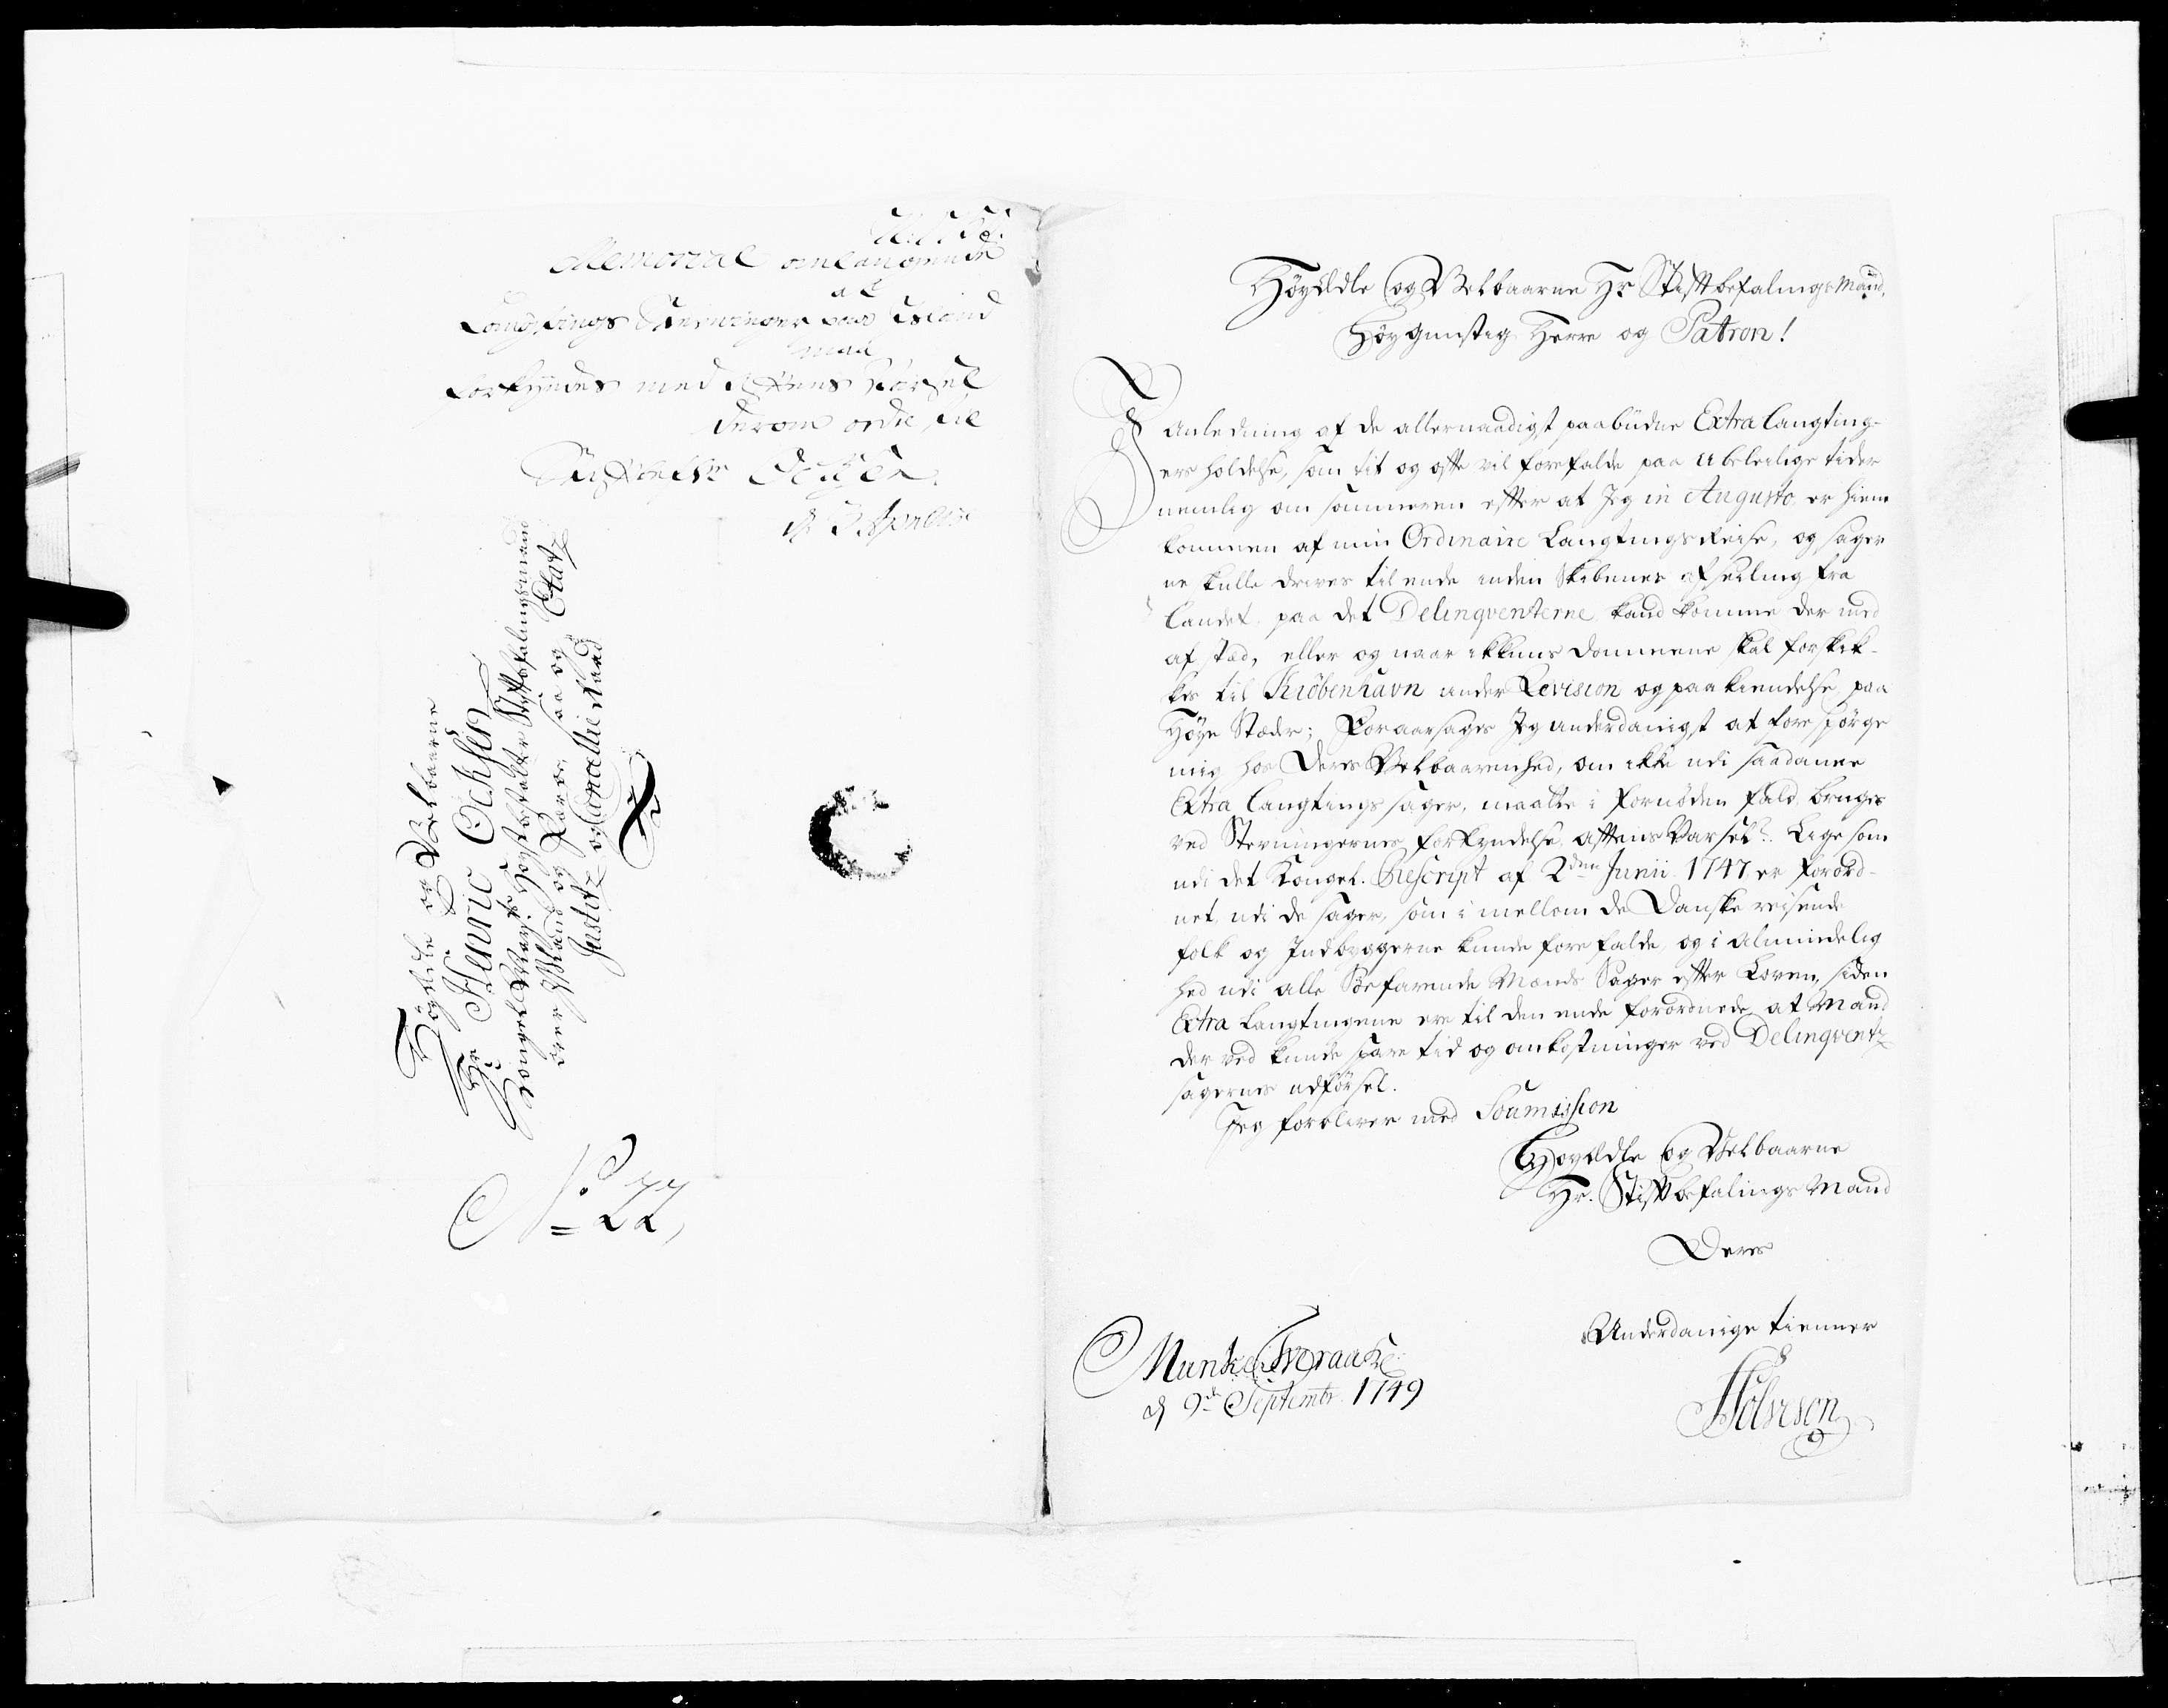 Memorial
Langtings Stevninger paa Island
maa
forkyndes med Aftens Varsel
derom ordre til
Stiftbefhr Ochsen
d. 3 April
Höyædle og Velbaarne
Hr Henric Ochsen
Kongel. Mayts. Höystbestalte Stiftbefalingsmand
over Island og Færöe, saa og Etatz
Justitz og Cancellie Raad
No. 22
HöyÆdle og Velbaarne Hr Stiftbefalings Mand,
Höygunstig Herre og Patron!
I Anledning af de allernaadigst paabudne Extra Langting-
ers holdelse, som tit og ofte vil forefalde paa ubeleilige tider
nemlig om sommeren efter at Jeg in Augusto er hiem
kommen af min Ordinaire Langtings Reise, og sager
ne skulle drives til ende inden Skibenes afseiling fra
Landet, paa det Delinqventerne kand komme der med
af stæd, eller og naar ikkuns Dommene skal forskik-
kes til Kiöbenhavn under Revision og paakiendelse paa
Höye Stæder; Foraarsages Jeg underdanigst at forespörge
mig hos Deres Velbaarenhed, om ikke udi saadanne
Extra Langtings sager, maatte i fornöden fald, bruges
ved Stevningernes forkyndelse, Aftens Varsel?. Lige som
udi det Kongel. Rescript af 2den Junii 1747 er forord-
net, udi de sager, som imellem de Danske reisende
folk og Indbyggerne kunde forefalde, og i Almindelig
hed udi alle Söefarende Mænds Sager efter Loven, siden
Extra Langtingene ere til den ende forordnede, at Mand
derved kunde spare tid og omkostninger ved Delinqventz
sagernes udförsel.
Jeg forbliver med Soumission
HöyÆdle og Velbaarne
Hr. Stiftbefalings Mand
Deres
Underdanige tienner
Munke Tveraae
d 9de Septembr. 1749